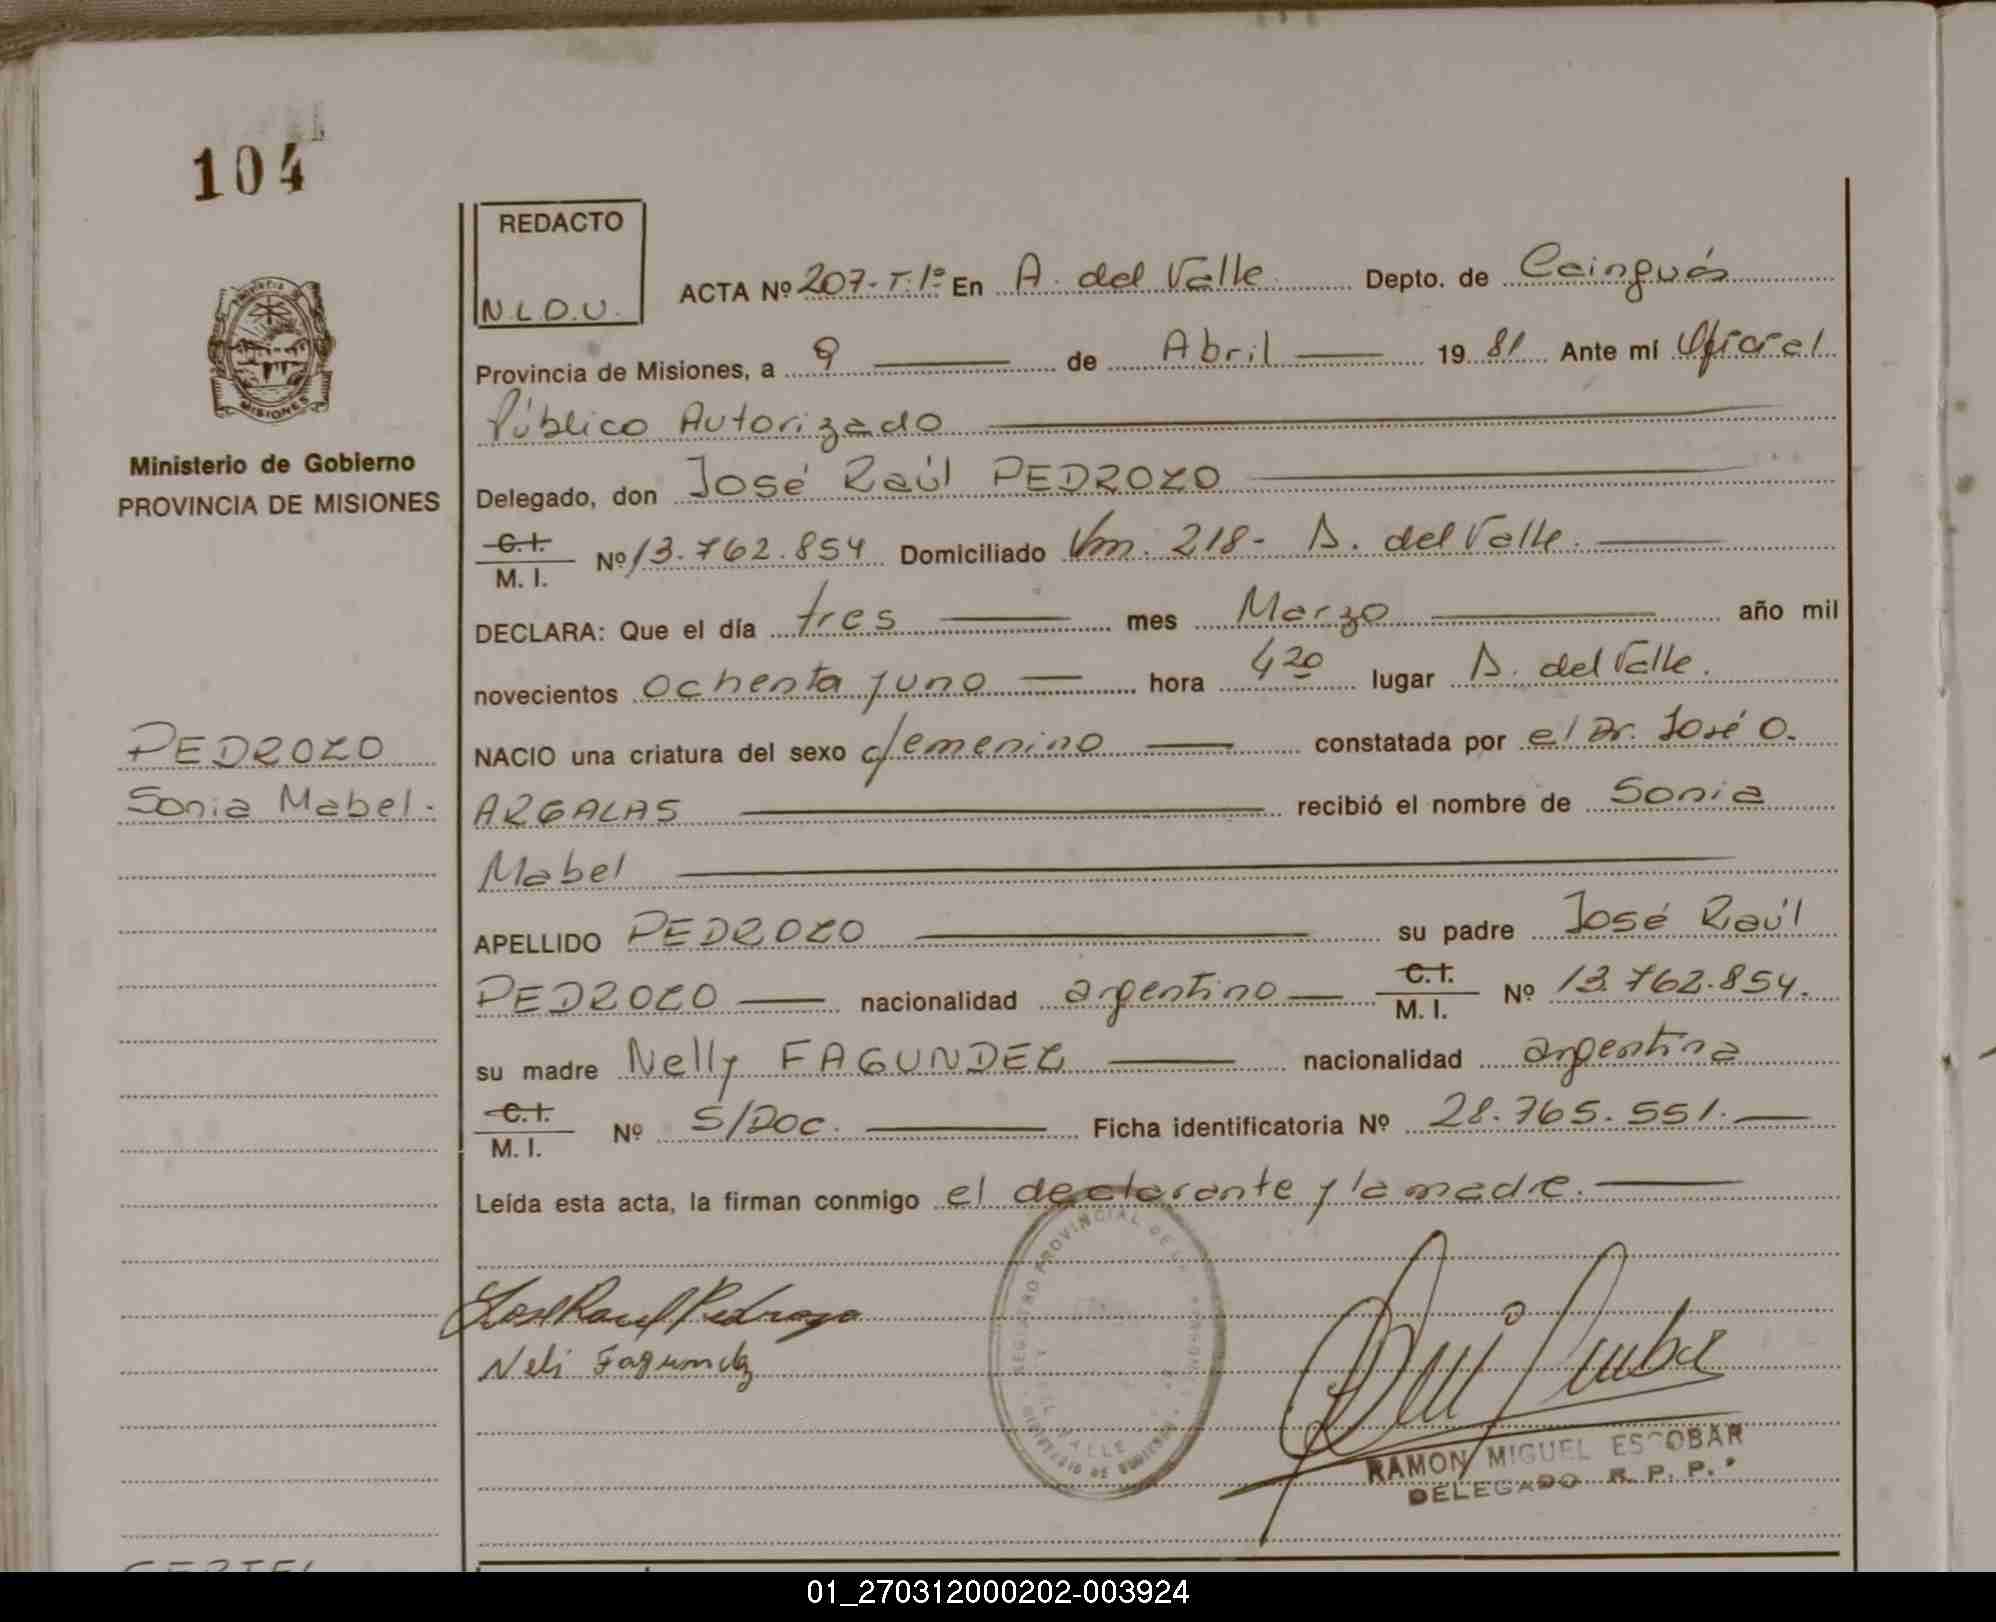 104
REDACTO
N.L.D.U.
ACTA Nº 207-T.1º En A. del Valle Depto. de Caingués
Provincia de Misiones, a 9 de Abril 1981 Ante mí Oficial
Público Autorizado
Delegado, don José Raúl PEDROZO
C.I. / M. I. Nº 13.762.854 Domiciliado Vm. 218- A. del Valle.
DECLARA: Que el día tres mes Marzo año mil
novecientos ochenta y uno hora 4 20 lugar A. del Valle.
NACIO una criatura del sexo femenino constatada por el Dr. José O.
ARGALAS recibió el nombre de Sonia
Mabel
APELLIDO PEDROZO su padre José Raúl
PEDROZO nacionalidad argentino C.I. / M. I. Nº 13.762.854.
su madre Nelly FAGUNDEZ nacionalidad argentina
C.I. / M. I. Nº S/Doc. Ficha identificatoria Nº 28.765.551.
Leída esta acta, la firman conmigo el declarante y la madre.
José Raul Pedrozo
Neli Fagundez
RAMON MIGUEL ESCOBAR
DELEGADO R. P. P.
MISIONES
Ministerio de Gobierno
PROVINCIA DE MISIONES
PEDROZO
Sonia Mabel.
REGISTRO PROVINCIAL DE LAS PERSONAS
VALLE
MINISTERIO DE GOBIERNO
01_270312000202-003924